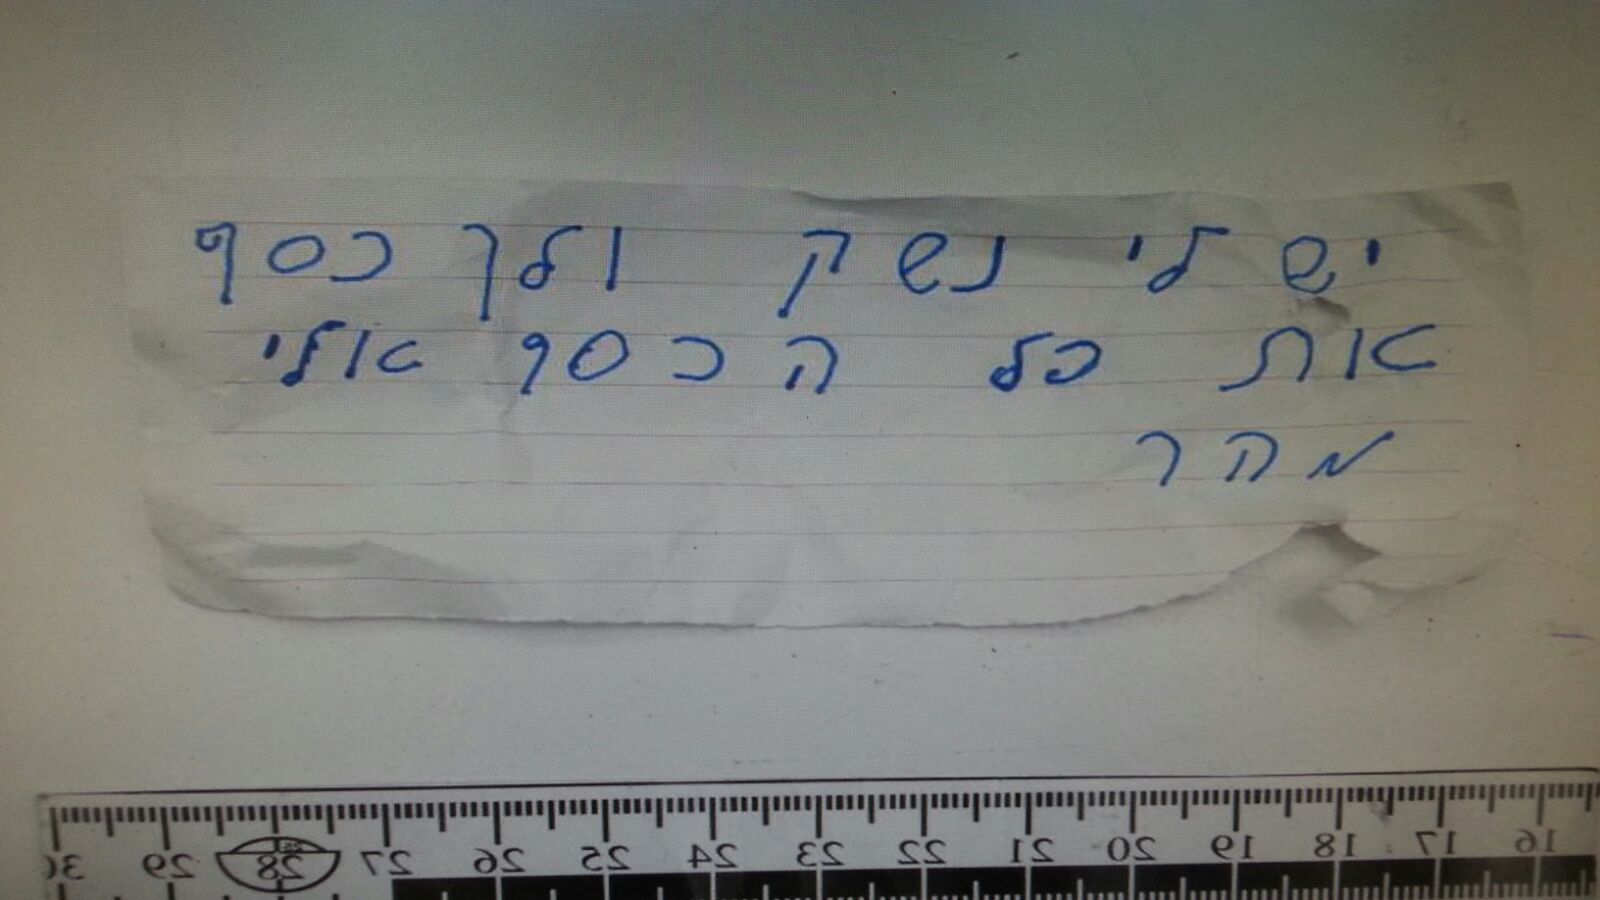 יש לי נשק ולך כסף
את כל הכסף אולי
מהר
16 17 18 19 20 21 22 23 24 25 26 27 28 29 30